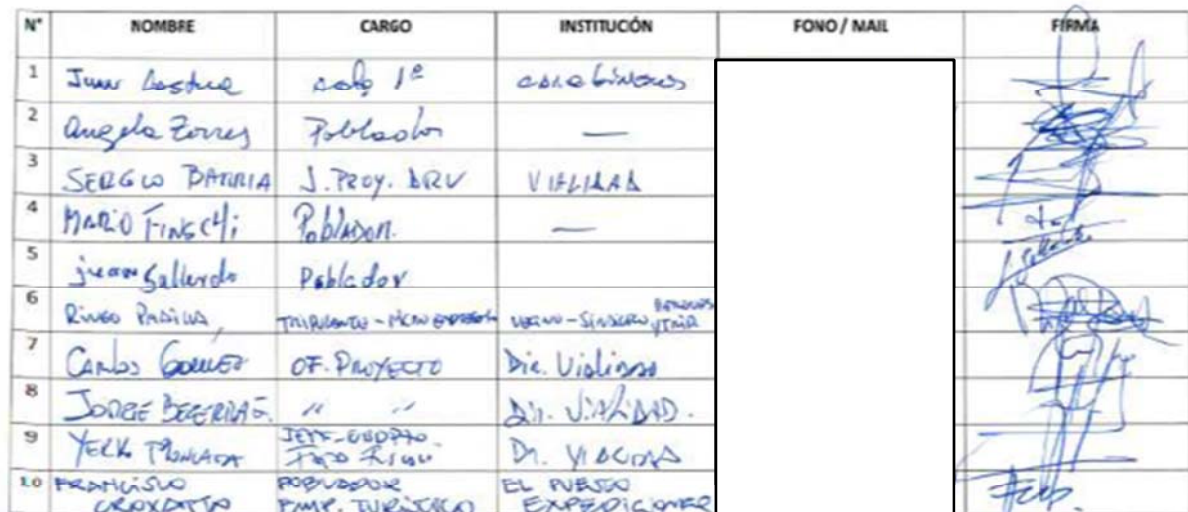 N° NOMBRE CARGO INSTITUCIÓN FONO / MAIL FIRMA
1 Juan cabo 1º carabineros
2 Angela Torres Poblador —
3 SERGIO BARRIA J. PROY. DRV VIALIDAD
4 MARIO FINSCHI POBLADOR. —
5 juan Gallardo Poblador
6 RINGO PADILLA
7 CARLOS GOMEZ OF. PROYECTO Dir. Vialidad
8 JORGE BECERRA " " Dir. VIALIDAD.
9 YERKO MONCADA Dr. VIALIDAD
10 FRANCISCO POBLADOR EL PUESTO
CROXATTO EMP. TURISTICO EXPEDICIONES